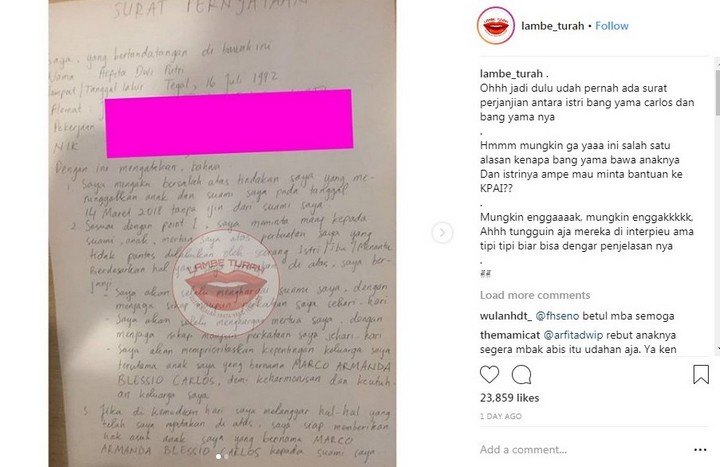 SURAT PERNYATAAN
Saya, yang bertandatangan di bawah ini
Nama Arfita Dwi Putri
Tempat/Tanggal lahir Tegal, 16 Juli 1992
Alamat
Pekerjaan
NIK
Dengan ini mengatakan, bahwa
1. Saya mengaku bersalah atas tindakan saya yang me-
ninggalkan anak dan suami saya pada tanggal
14 Maret 2018 tanpa ijin dari suami saya
2. Sesuai dengan point 1, saya meminta maaf kepada
suami, anak, mertua saya atas perbuatan saya yang
tidak pantas dilakukan oleh seorang Istri/Ibu/
Berdasarkan hal di atas, saya ber-
janji
- Saya akan selalu menghargai suami saya, dengan
menjaga sikap maupun perkataan saya sehari-hari
- Saya akan selalu menghargai mertua saya, dengan
menjaga sikap maupun perkataan saya sehari-hari
- Saya akan memprioritaskan kepentingan keluarga saya
terutama anak saya yang bernama MARCO ARMANDA
BLESSIO CARLOS, demi keharmonisan dan keutuh-
an keluarga saya
3. Jika di kemudian hari saya melanggar hal-hal yang
telah saya nyatakan di atas, saya siap memberikan
hak asuh anak saya yang bernama MARCO
ARMANDA BLESSIO CARLOS kepada suami saya.
LAMBE TURAH
lambe_turah • Follow
lambe_turah .
Ohhh jadi dulu udah pernah ada surat
perjanjian antara istri bang yama carlos dan
bang yama nya
.
Hmmm mungkin ga yaaa ini salah satu
alasan kenapa bang yama bawa anaknya
Dan istrinya ampe mau minta bantuan ke
KPAI??
.
Mungkin enggaaaak, mungkin enggakkkkk,
Ahhh tungguin aja mereka di interpieu ama
tipi tipi biar bisa dengar penjelasan nya
.
##
Load more comments
wulanhdt_ @fhseno betul mba semoga
themamicat @arfitadwip rebut anaknya
segera mbak abis itu udahan aja. Ya ken
23,859 likes
1 DAY AGO
Add a comment...